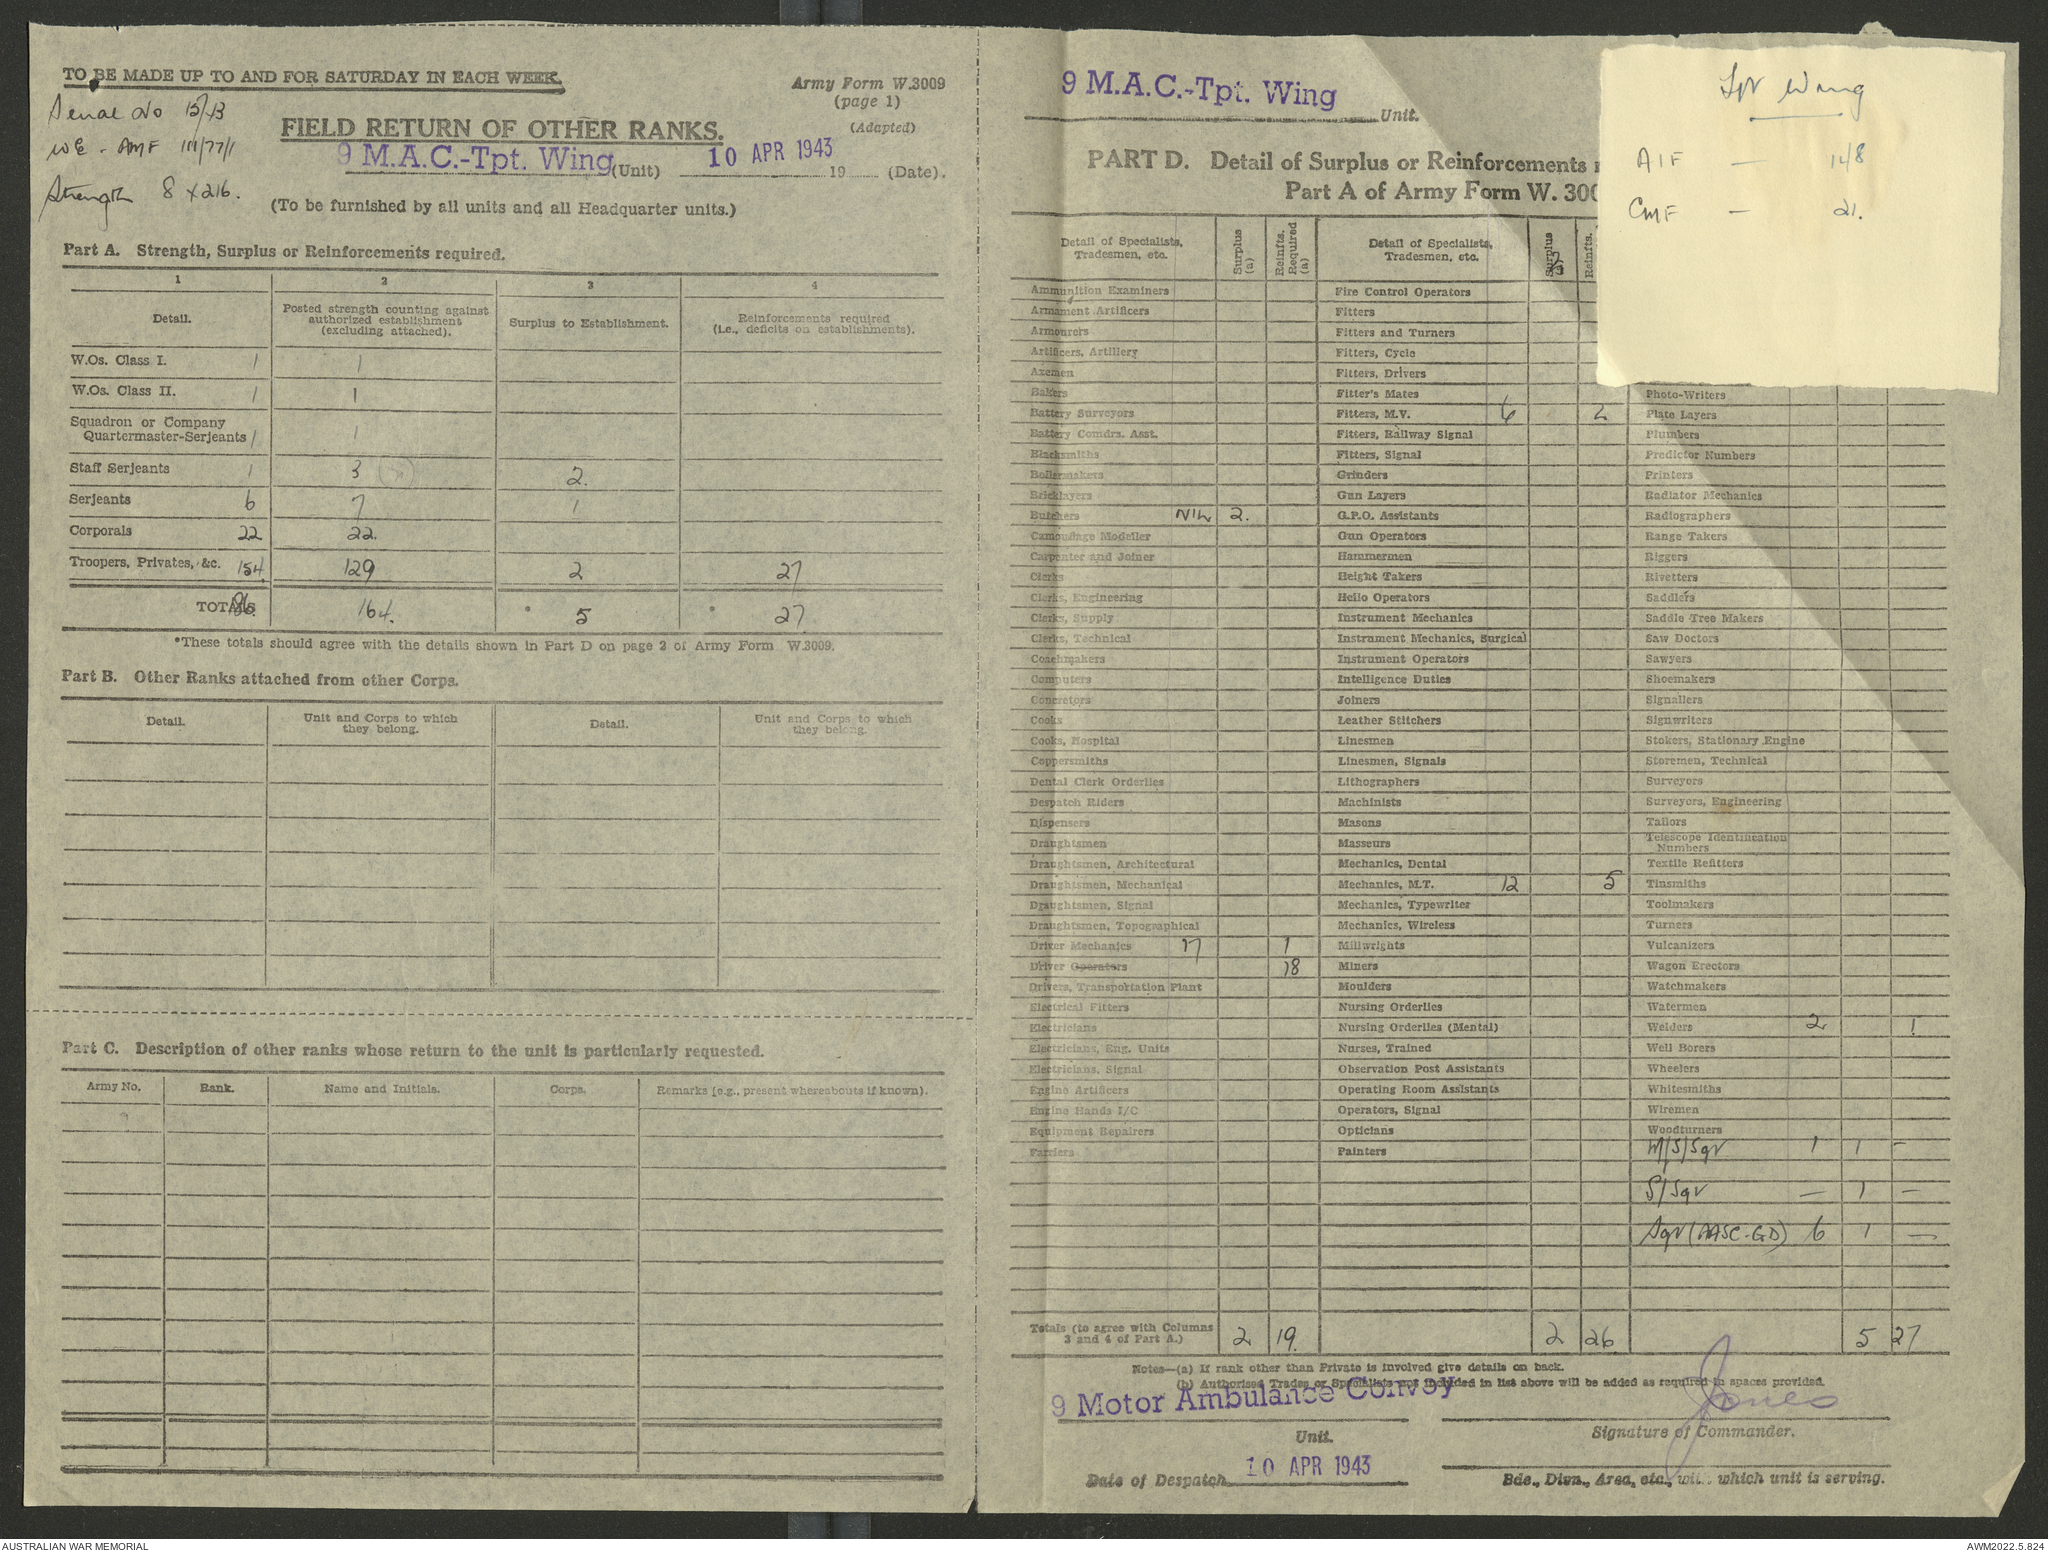 TO BE MADE UP TO AND FOR SATURDAY IN EACH WEEK.
Army Form W.3009
(page 1)
(Adapted)
Serial No 15/43
WE - AMF 111/77/1
Strength 8 x 216.
FIELD RETURN OF OTHER RANKS.
9 M.A.C.-Tpt. Wing (Unit) 10 APR 1943 19 (Date).
(To be furnished by all units and all Headquarter units.)
Part A. Strength, Surplus or Reinforcements required.
1 2 3 4
Detail.
Posted strength counting against
authorized establishment
(excluding attached).
Surplus to Establishment.
Reinforcements required
(i.e., deficits on establishments).
W.Os. Class I. 1 1
W.Os. Class II. 1 1
Squadron or Company
Quartermaster-Serjeants 1 1
Staff Serjeants 1 3 2.
Serjeants 6 7 1
Corporals 22 22.
Troopers, Privates, &c. 154 129 2 27
TOTALS 186. 164. * 5 * 27
*These totals should agree with the details shown in Part D on page 2 of Army Form W.3009.
Part B. Other Ranks attached from other Corps.
Detail.
Unit and Corps to which
they belong.
Detail.
Unit and Corps to which
they belong.
Part C. Description of other ranks whose return to the unit is particularly requested.
Army No. Rank. Name and Initials. Corps. Remarks (e.g., present whereabouts if known).
9 M.A.C.-Tpt. Wing Unit.
PART D. Detail of Surplus or Reinforcements
Part A of Army Form W. 300
Tpt Wing
AIF — 148
CMF — 21.
Detail of Specialists,
Tradesmen, etc.
Surplus
(a)
Reinfts.
Required
(a)
Ammunition Examiners
Armament Artificers
Armourers
Artificers, Artillery
Axemen
Bakers
Battery Surveyors
Battery Comdrs. Asst.
Blacksmiths
Boilermakers
Bricklayers
Butchers NIL 2.
Camouflage Modeller
Carpenter and Joiner
Clerks
Clerks, Engineering
Clerks, Supply
Clerks, Technical
Coachmakers
Computers
Concretors
Cooks
Cooks, Hospital
Coppersmiths
Dental Clerk Orderlies
Despatch Riders
Dispensers
Draughtsmen
Draughtsmen, Architectural
Draughtsmen, Mechanical
Draughtsmen, Signal
Draughtsmen, Topographical
Driver Mechanics 17 1
Driver Operators 18
Drivers, Transportation Plant
Electrical Fitters
Electricians
Electricians, Eng. Units
Electricians, Signal
Engine Artificers
Engine Hands I/C
Equipment Repairers
Farriers
Detail of Specialists,
Tradesmen, etc.
Surplus
Reinfts.
Fire Control Operators
Fitters
Fitters and Turners
Fitters, Cycle
Fitters, Drivers
Fitter's Mates
Fitters, M.V. 6 2
Fitters, Railway Signal
Fitters, Signal
Grinders
Gun Layers
G.P.O. Assistants
Gun Operators
Hammermen
Height Takers
Helio Operators
Instrument Mechanics
Instrument Mechanics, Surgical
Instrument Operators
Intelligence Duties
Joiners
Leather Stitchers
Linesmen
Linesmen, Signals
Lithographers
Machinists
Masons
Masseurs
Mechanics, Dental
Mechanics, M.T. 12 5
Mechanics, Typewriter
Mechanics, Wireless
Millwrights
Miners
Moulders
Nursing Orderlies
Nursing Orderlies (Mental)
Nurses, Trained
Observation Post Assistants
Operating Room Assistants
Operators, Signal
Opticians
Painters
Photo-Writers
Plate Layers
Plumbers
Predictor Numbers
Printers
Radiator Mechanics
Radiographers
Range Takers
Riggers
Rivetters
Saddlers
Saddle Tree Makers
Saw Doctors
Sawyers
Shoemakers
Signallers
Signwriters
Stokers, Stationary Engine
Storemen, Technical
Surveyors
Surveyors, Engineering
Tailors
Telescope Identification
Numbers
Textile Refitters
Tinsmiths
Toolmakers
Turners
Vulcanizers
Wagon Erectors
Watchmakers
Watermen
Welders 2 1
Well Borers
Wheelers
Whitesmiths
Wiremen
Woodturners
M/S/Sgt 1 1 -
S/Sgt — 1 —
Sgt (AASC-GD) 6 1 —
Totals (to agree with Columns
3 and 4 of Part A.) 2 19. 2 26 5 27
Notes—(a) If rank other than Private is involved give details on back.
(b) Authorised Trades or Specialists not included in list above will be added as required in spaces provided.
9 Motor Ambulance Convoy
Unit.
Jones
Signature of Commander.
Date of Despatch 10 APR 1943
Bde., Divn., Area, etc., with which unit is serving.
AUSTRALIAN WAR MEMORIAL
AWM2022.5.824